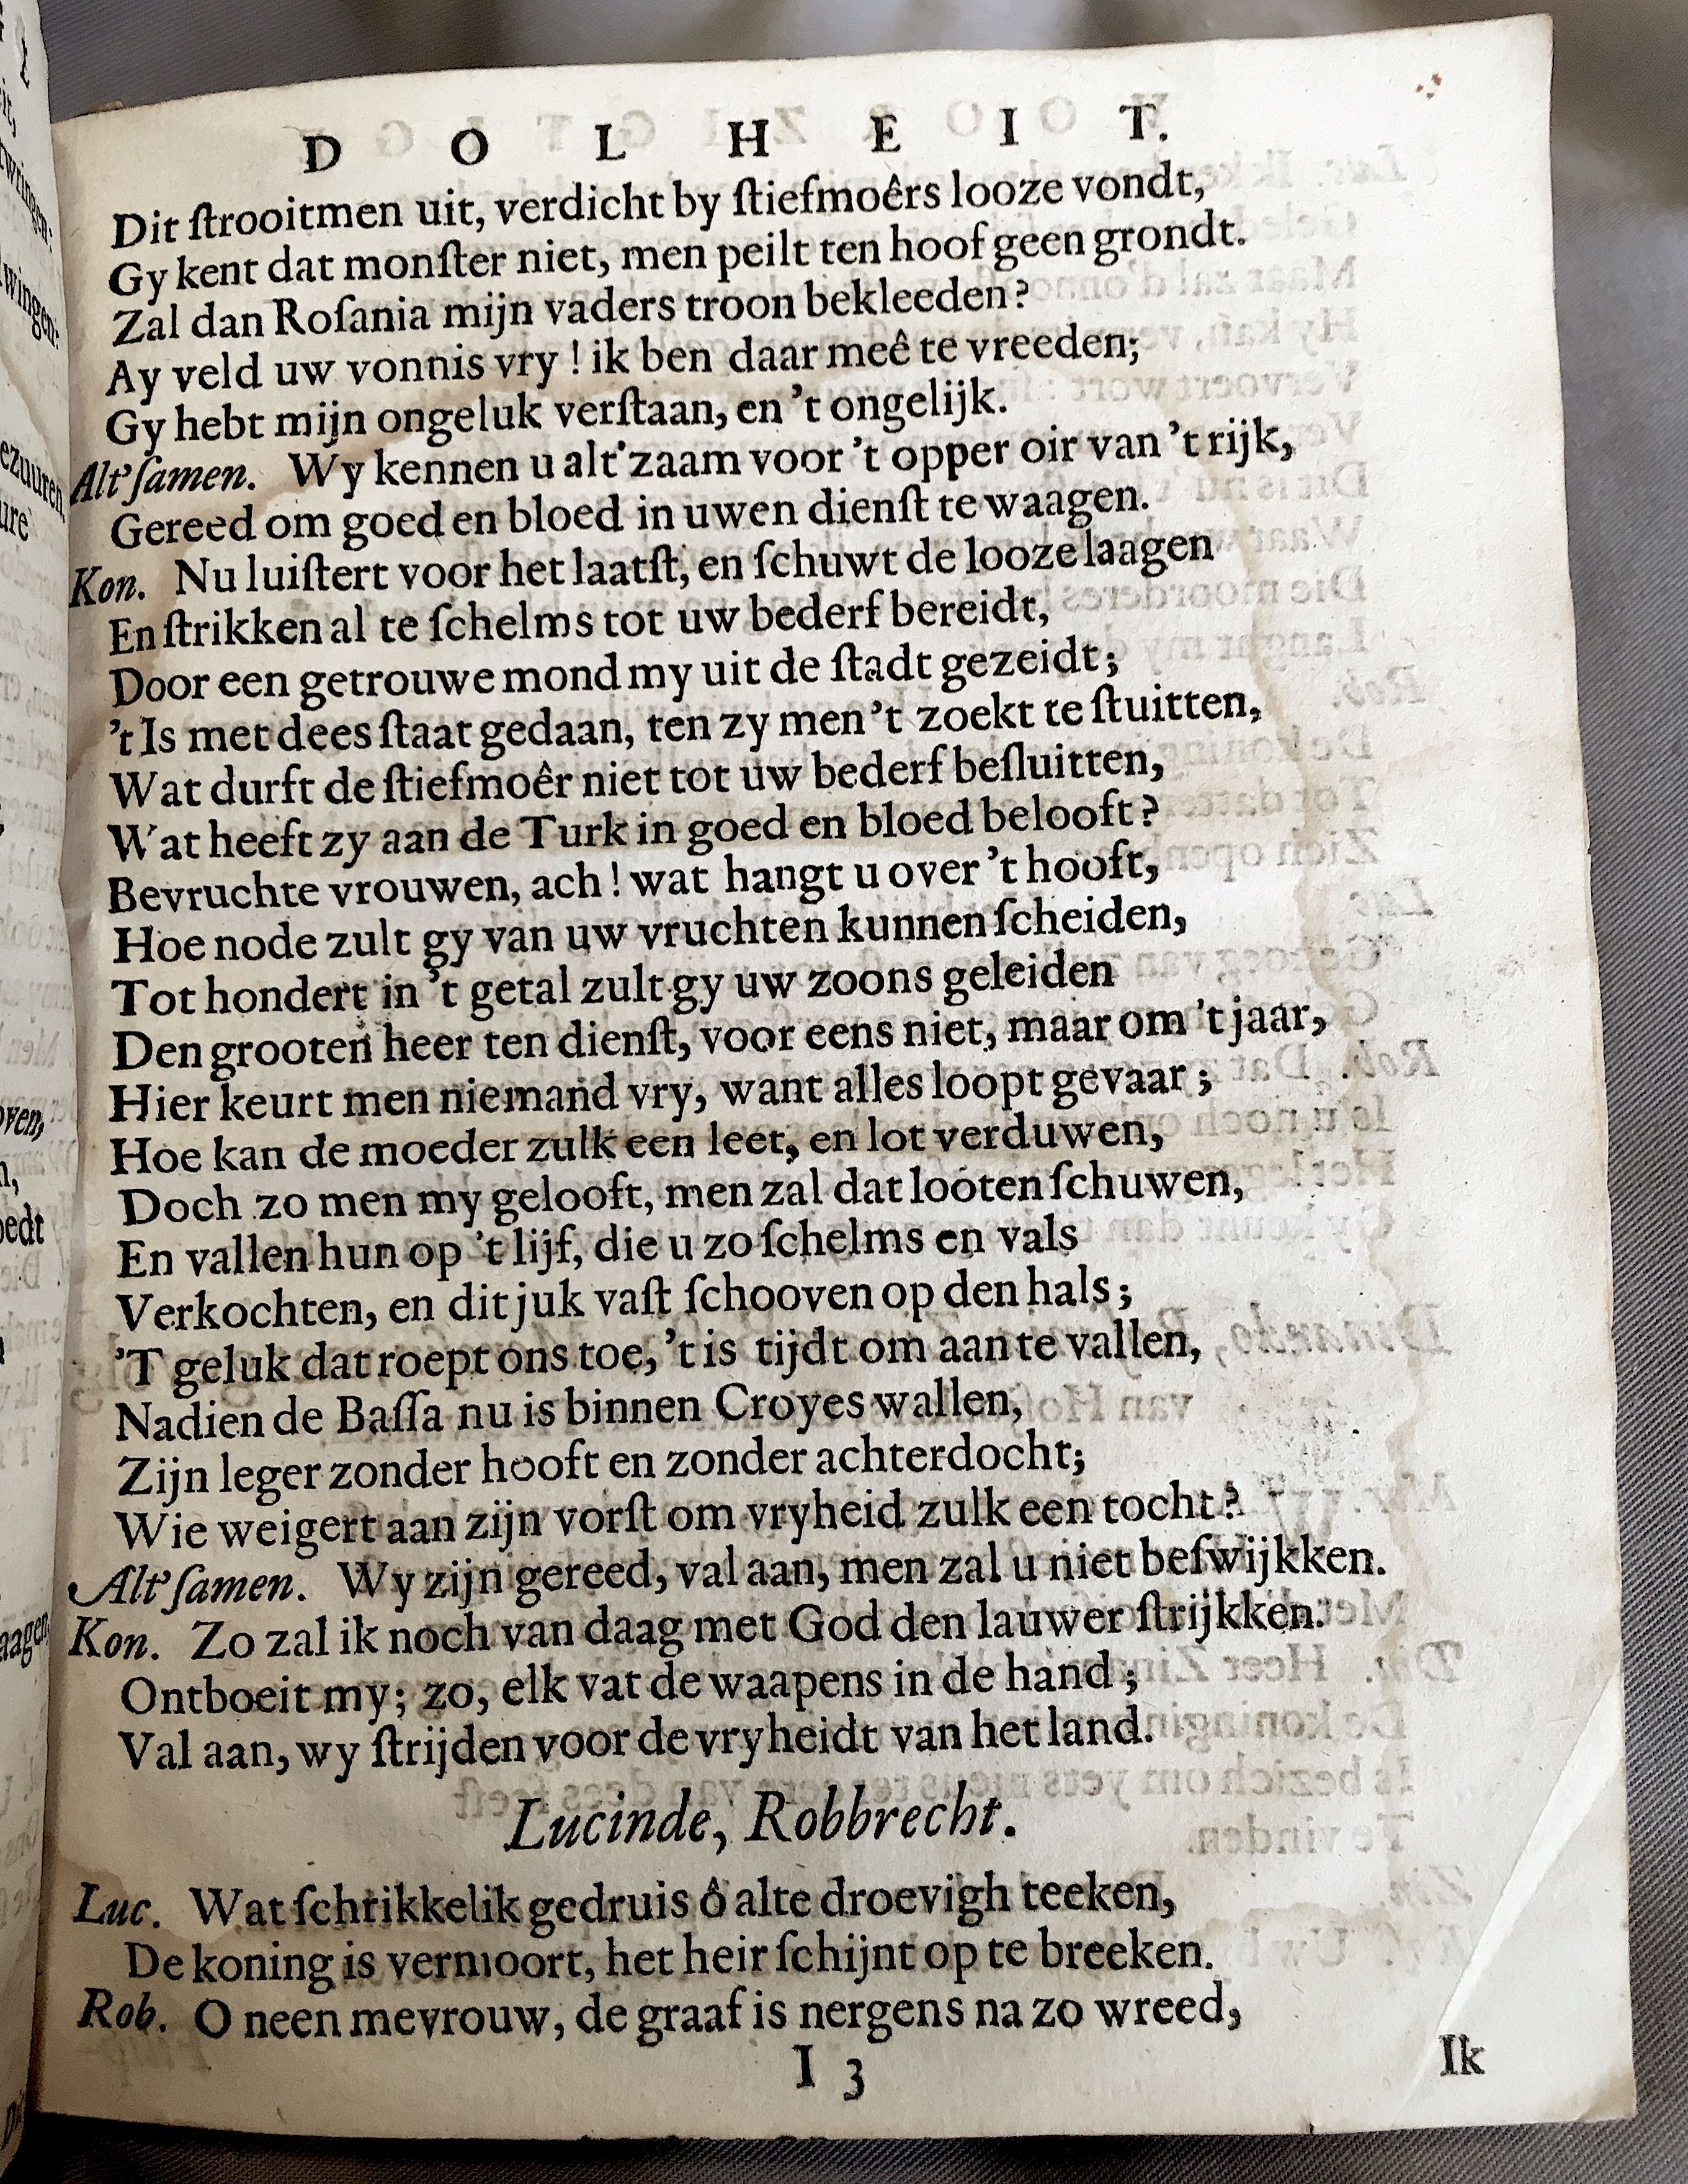 D O L H E I T.
Dit ſtrooitmen uit, verdicht by ſtiefmoêrs looze vondt,
Gy kent dat monſter niet, men peilt ten hoof geen grondt.
Zal dan Roſania mijn vaders troon bekleeden?
Ay veld uw vonnis vry! ik ben daar meê te vreeden;
Gy hebt mijn ongeluk verſtaan, en 't ongelijk.
Alt'ſamen. Wy kennen u alt'zaam voor 't opper oir van 't rijk,
Gereed om goed en bloed in uwen dienſt te waagen.
Kon. Nu luiſtert voor het laatſt, en ſchuwt de looze laagen
En ſtrikken al te ſchelms tot uw bederf bereidt,
Door een getrouwe mond my uit de ſtadt gezeidt;
't Is met dees ſtaat gedaan, ten zy men 't zoekt te ſtuitten,
Wat durft de ſtiefmoêr niet tot uw bederf beſluitten,
Wat heeft zy aan de Turk in goed en bloed belooft?
Bevruchte vrouwen, ach! wat hangt u over 't hooft,
Hoe node zult gy van uw vruchten kunnen ſcheiden,
Tot hondert in 't getal zult gy uw zoons geleiden
Den grooten heer ten dienſt, voor eens niet, maar om 't jaar,
Hier keurt men niemand vry, want alles loopt gevaar;
Hoe kan de moeder zulk een leet, en lot verduwen,
Doch zo men my gelooft, men zal dat looten ſchuwen,
En vallen hun op 't lijf, die u zo ſchelms en vals
Verkochten, en dit juk vaſt ſchooven op den hals;
'T geluk dat roept ons toe, 't is tijdt om aan te vallen,
Nadien de Baſſa nu is binnen Croyes wallen,
Zijn leger zonder hooft en zonder achterdocht;
Wie weigert aan zijn vorſt om vryheid zulk een tocht?
Alt'ſamen. Wy zijn gereed, val aan, men zal u niet beſwijkken.
Kon. Zo zal ik noch van daag met God den lauwer ſtrijkken.
Ontboeit my; zo, elk vat de waapens in de hand;
Val aan, wy ſtrijden voor de vryheidt van het land.
Lucinde, Robbrecht.
Luc. Wat ſchrikkelik gedruis ô alte droevigh teeken,
De koning is vermoort, het heir ſchijnt op te breeken.
Rob. O neen mevrouw, de graaf is nergens na zo wreed,
I 3
Ik